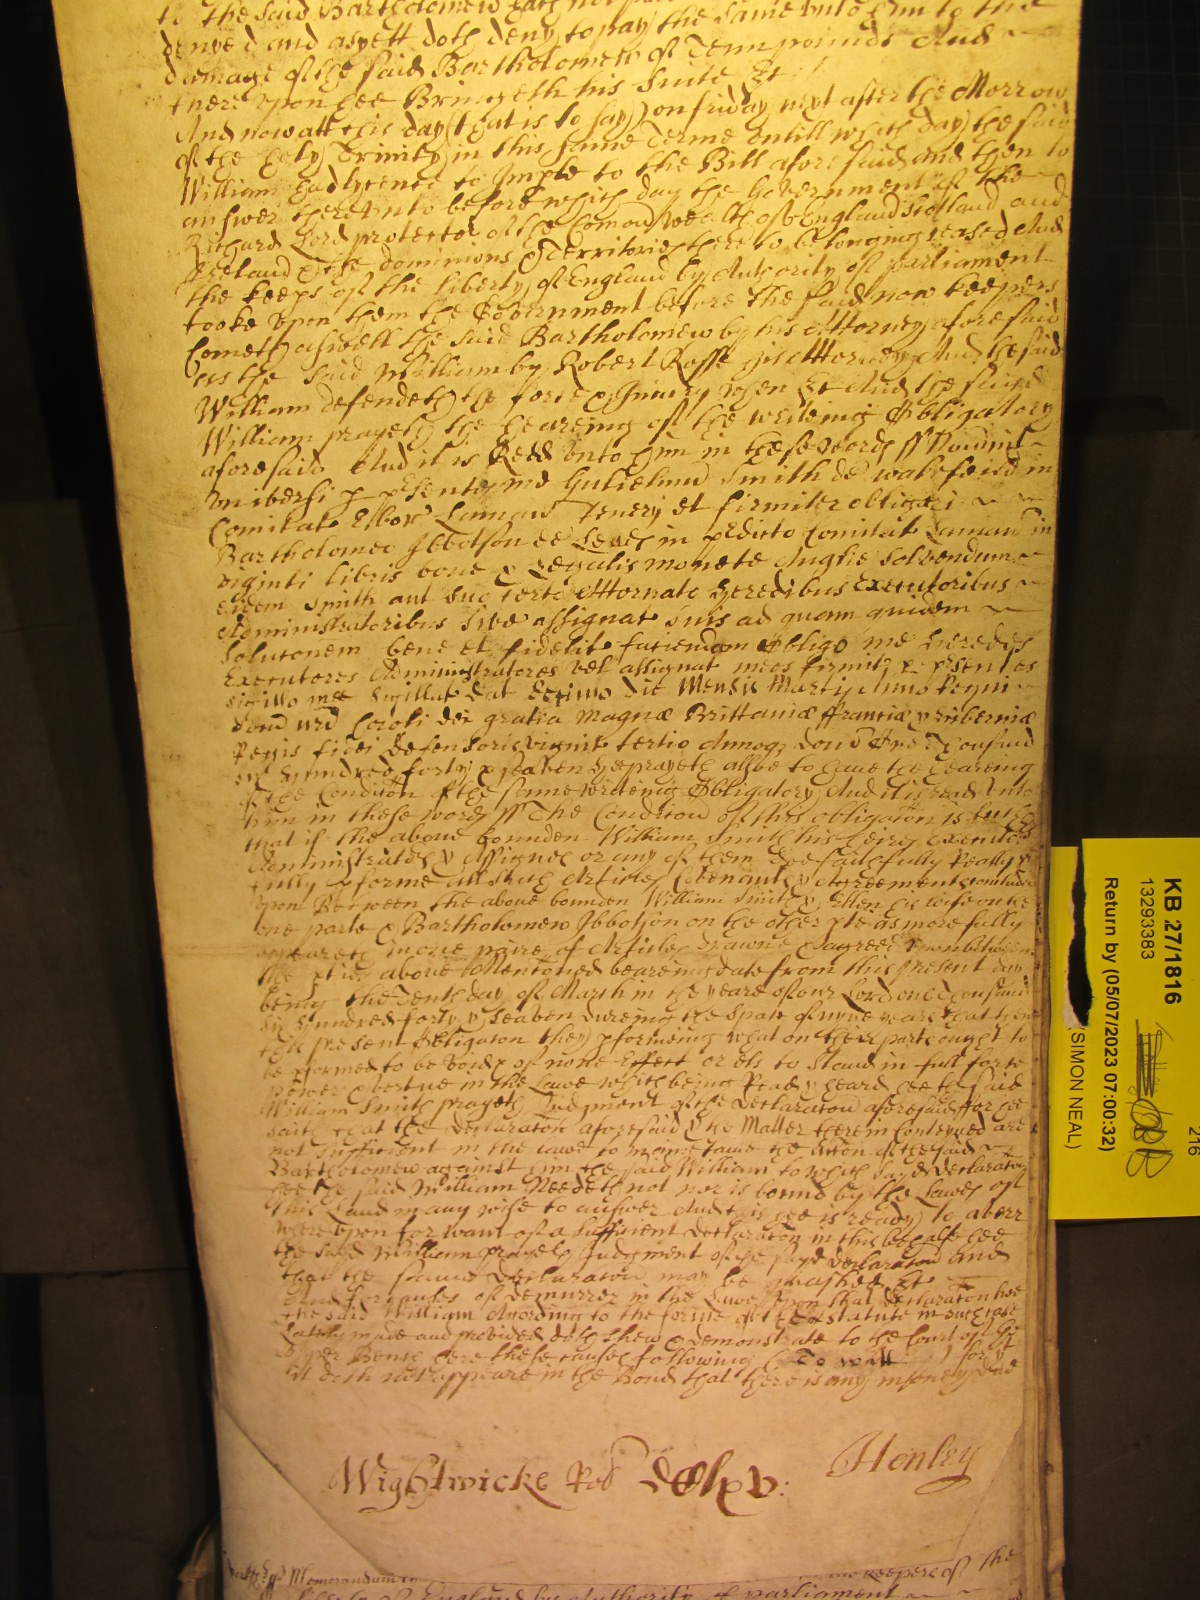 to the said Bartholomew hath not paid the same unto him to this
denyed and as yett doth deny to pay the same unto him to the
damage of the said Bartholomew of Tenn pounds And
thereupon hee Bringeth his suite &c
And now att this day (that is to say) on friday next after the Morrow
of the holy Trinity in this same Terme untill which day the said
William had lycence to Imple to the Bill aforesaid and then to
answer thereunto before which day the Government of the
Richard Lord protector of the Comonwealth of England Scotland and
Ireland & the dominions & Territories thereto belonging ceased And
the keeps of the liberty of England by Authority of parliament
tooke upon them the Government before the said now keepers
Cometh aswell the said Bartholomew by his Attorney aforesaid
as the said William by Robert Rosse his Attorney And the said
William defendeth the force & Injury when &c And the said
William prayeth the heareing of the writeing Obligatory
aforesaid And it is Read unto him in these words ss Noverint
universi p psentes me Gulielmu Smith de wakefeild in
Comitat Ebor Teneri et firmiter obligari
Bartholomeo Ibbotson de Leeds in pdicto Comitat in
viginti libris bone & Legalis monete Anglie Solvendum
eidem Smith aut suo certo Attornato heredibus Executoribus
Administratoribus sive assignat suis ad quam quidem
Solutonem bene et fidelit faciendam Obligo me heredes
Executores Administratores vel assignat meos firmit p psentes
sigillo meo Sigillat dat decimo die Mensis Martij Anno Regni
dom nri Caroli dei gratia Magnæ Brittaniæ ffranciæ & Hiberniæ
Regis fidei defensoris vicesimo tertio Annoq dom One Thousand
six hundred forty & seaven hee prayeth allsoe to have the heareing
of the Condition of the same writeing Obligatory And it is read unto
him in these words ss The Condition of this obligaton is such
that if the above bounden William Smith his heires executors
Administrators & Assignes or any of them doe faithfully Really &
fully pforme all such Articles Covenants & Agreements concluded
upon Between the above bounden William Smith & Ellen his wife on the
one parte & Bartholomew Ibbotson on the other pte as more fully
appeareth in one paire of Articles drawne & agreed upon betweene
the pties above Mentioned beareing date from this present day
being the Tenth day of March in the yeare of our Lord one thousand
six hundred forty & seaven dureing the space of nyne years that then
this present Obligaton they pformeing what on their part ought to
be pformed to be void & of none Effect or els to Stand in full force
power & vertue in the Lawe which being Read & heard hee the said
William Smith prayeth Judgment of the declaraton aforesaid ffor hee
saith that the declaraton aforesaid & the Matter therein Conteyned are
not sufficient in the lawe to mainetaine the Acton of the said
Bartholomew against him the said William to which sayd declaraton
hee the said William Needeth not nor is bound by the Lawes of
this Land in any wise to answer And this hee is ready to averr
whereupon for want of a sufficient declaraton in this behalfe hee
the said William prayeth Judgment of the sayd declaraton and
that the same declaraton may be quashed &c
And for causes of demurrer in the Lawe upon that declaraton hee
the said William According to the forme of the statute in such case
Lately made and provided doth shew & demonstrate to the Court of the
Upper Bench here these causes following (To witt) for yt
it doth not appeare in the Bond that there is any money
Wightwicke Henley
Memorandum keepers of the
liberty of England by authority of parliament
KB 27/1816
13293383
Return by (05/07/2023 07:00:32)
(SIMON NEAL)
216